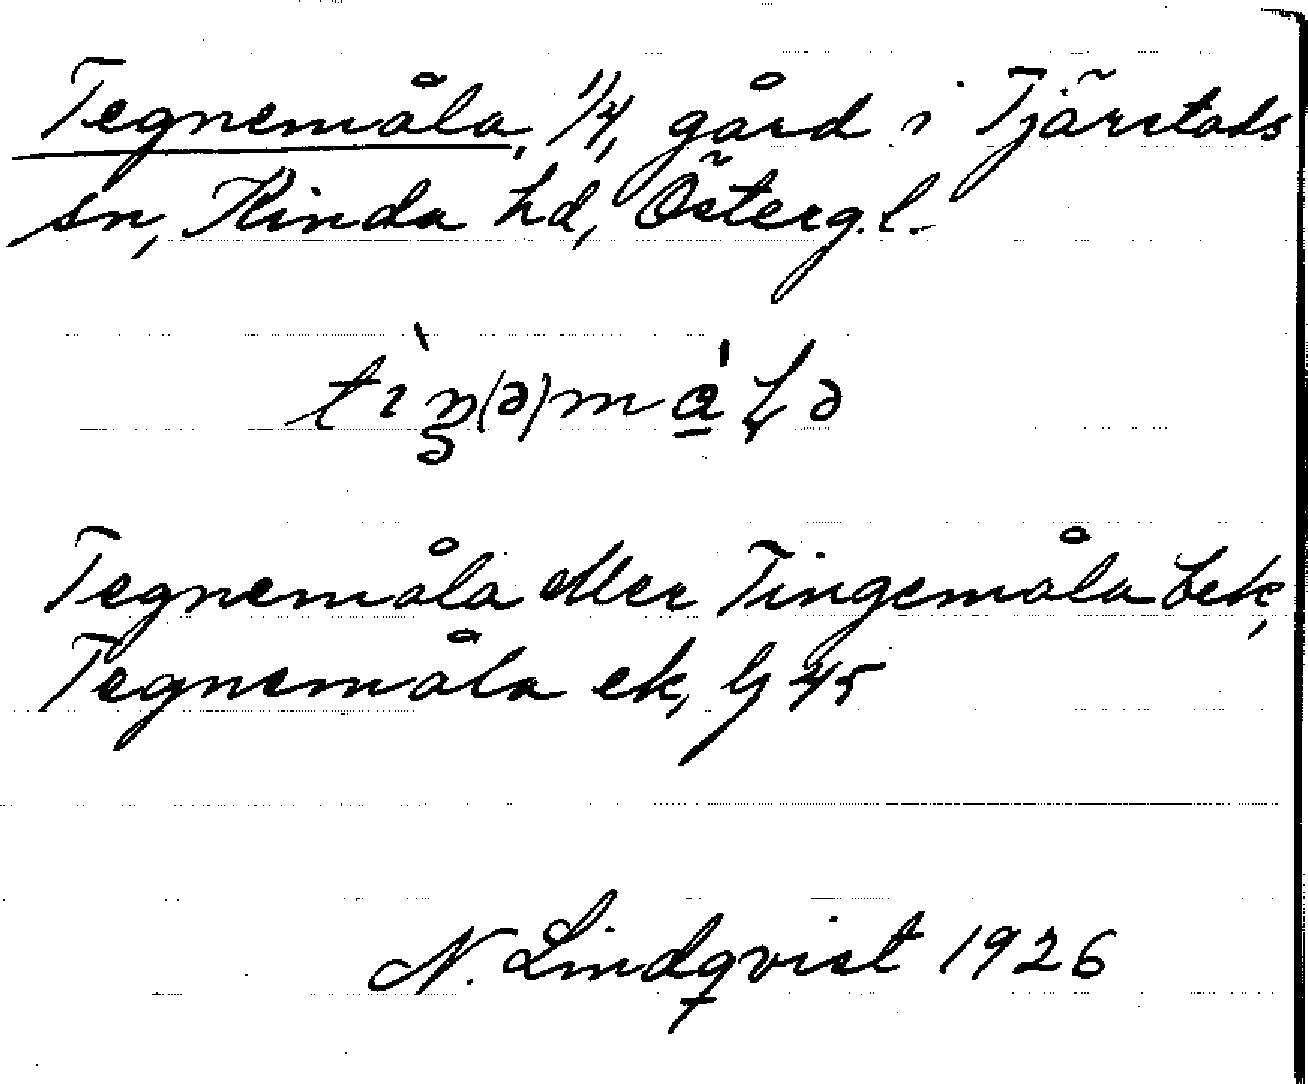 Tegnemåla, 1/4, gård i Tjärstads
sn, Kinda hd, Östergl.
Tegnemåla eller Tingemåla bek,
Tegnemåla ek, G 45
N. Lindqvist 1926